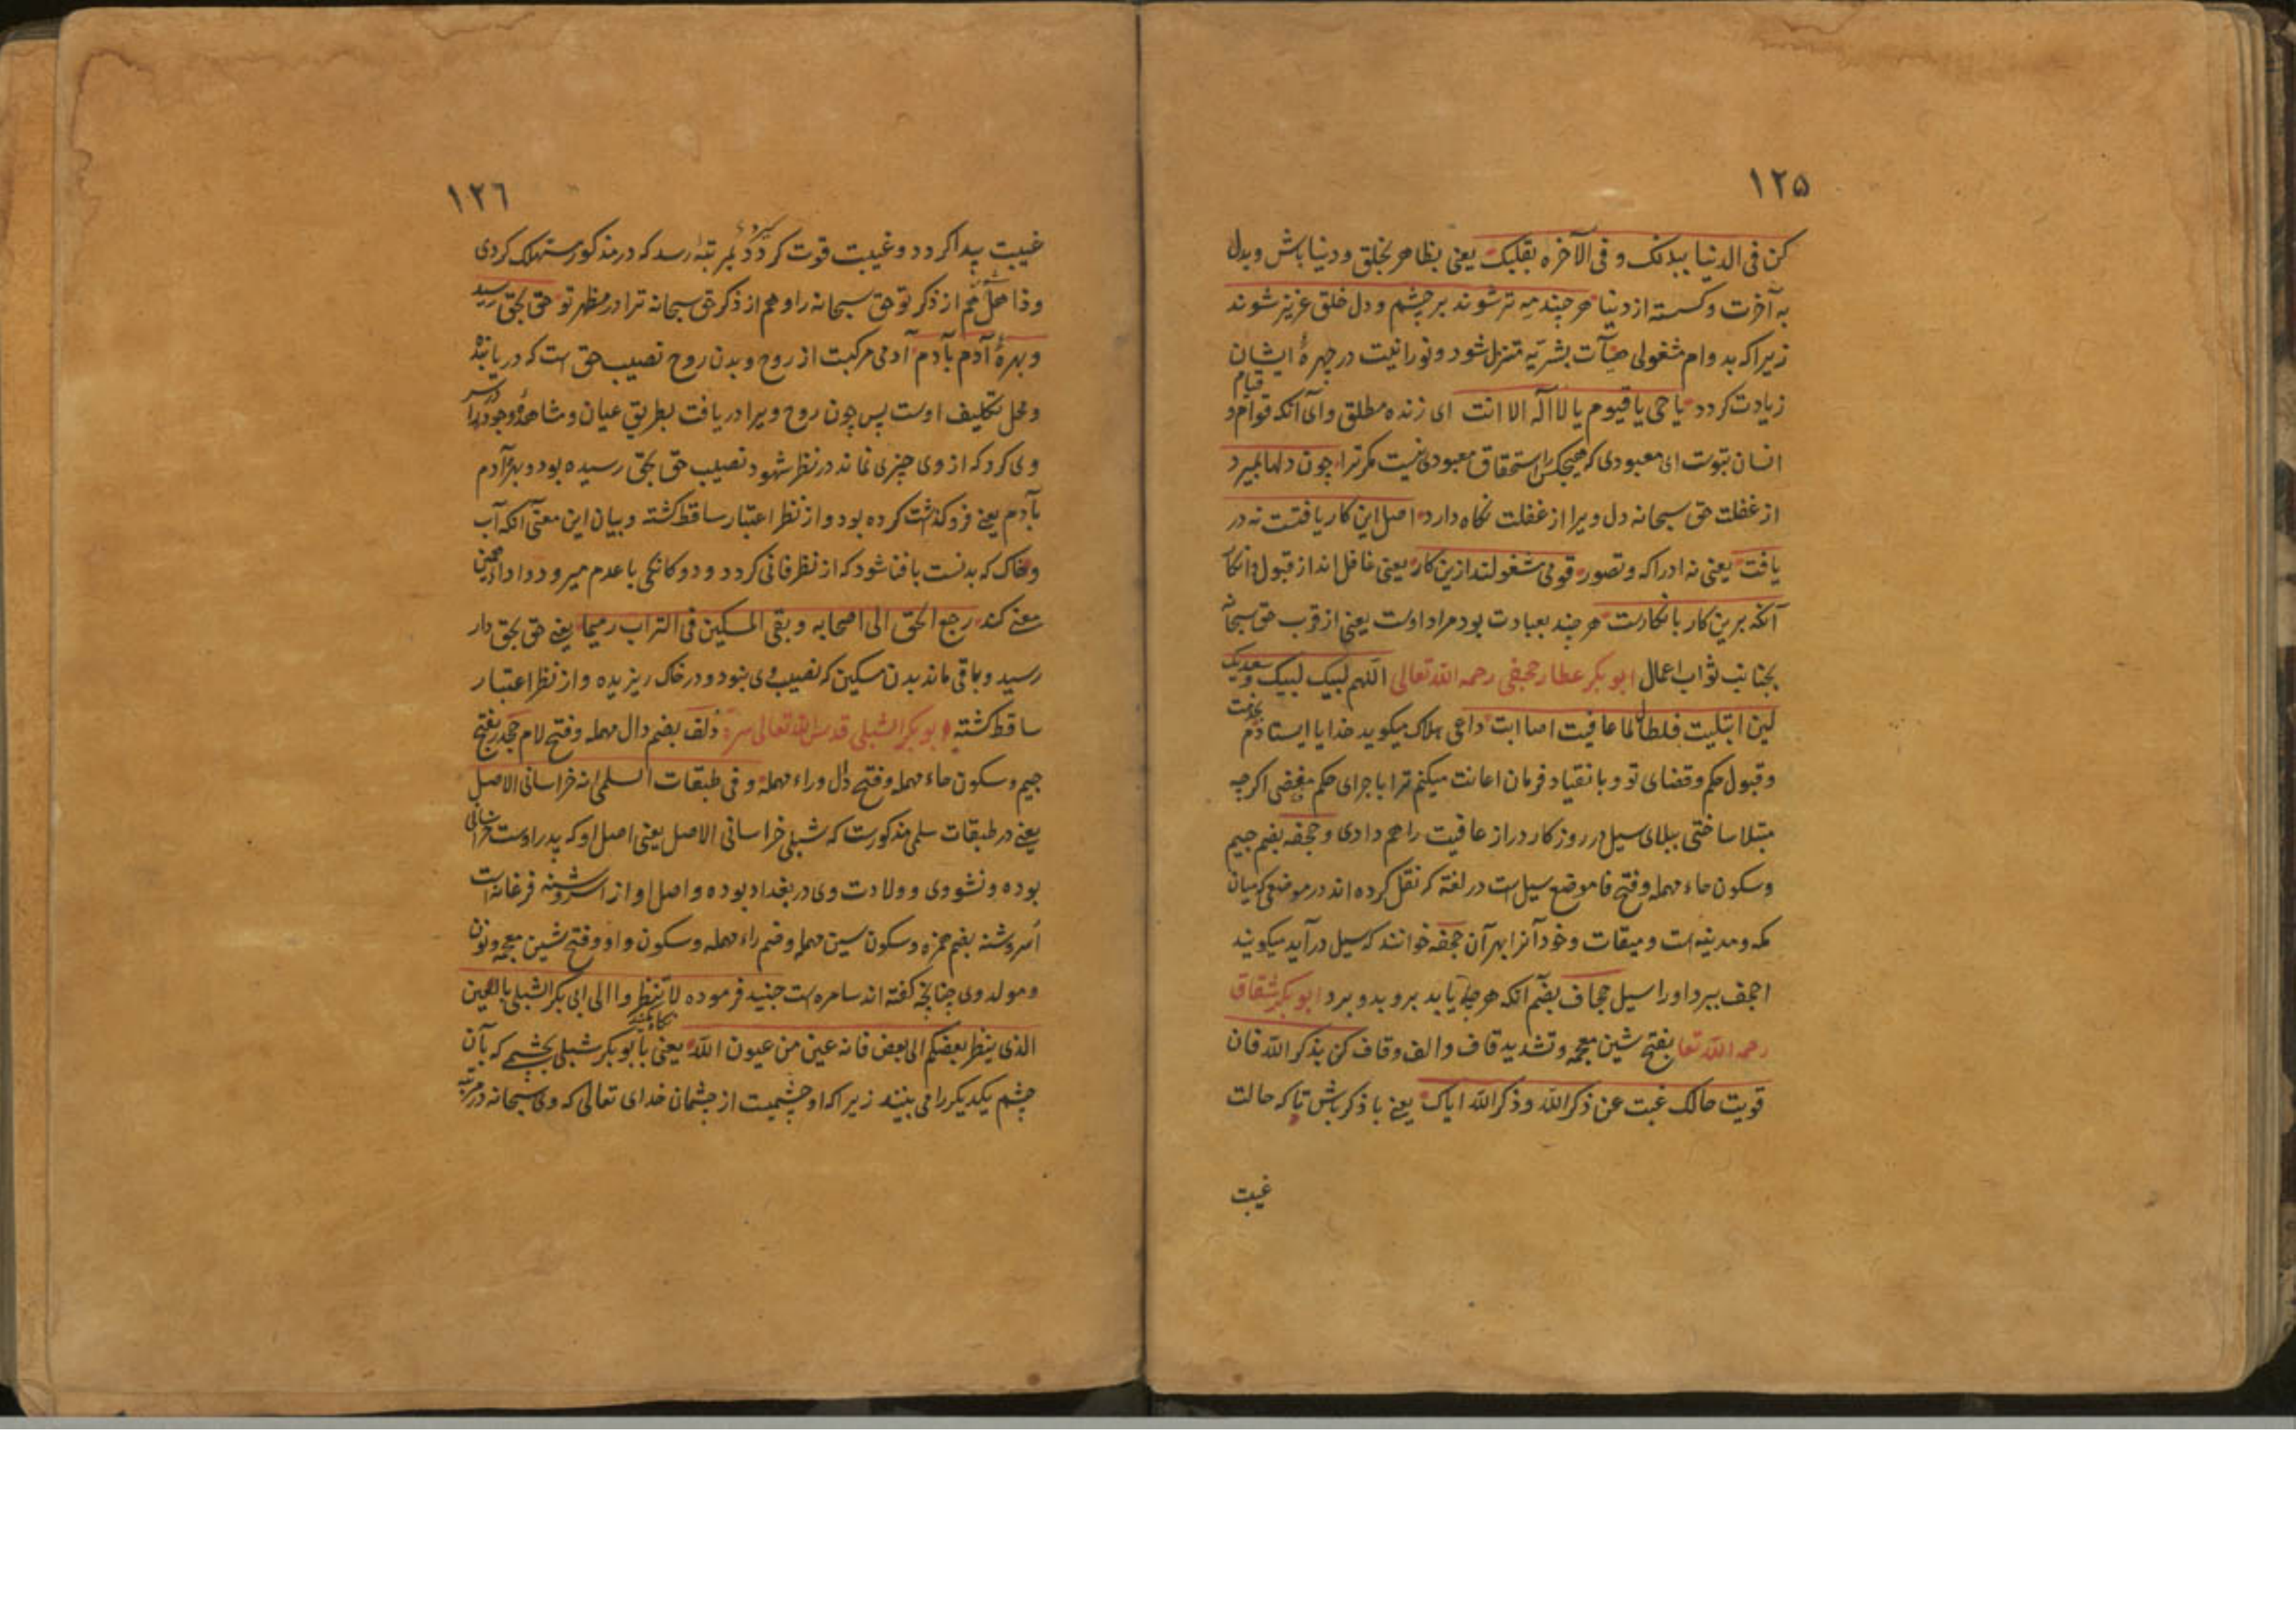 ۱۲۵
کن فی الدنیا ببدنک و فی الآخره بقلبک یعنی بظاهر بخلق و دنیا باش و بدل
به آخرت و کسسته از دنیا هر چند مه تر شوند بر چشم و دل خلق عزیز شوند
زیرا که بدوام مشغولی هیآت بشریه متنزل شود و نورانیت در چهرهٔ ایشان
زیادت کردد یا حی یا قیوم یا لا اله الا انت ای زنده مطلق و آی آنکه قوام و قیام
انسان بتوست ای معبودی که هیچکس را استحقاق معبودی نیست مکر ترا چون دلها بمیرد
از غفلت حق سبحانه دل ویرا از غفلت نکاه دارد اصل این کار یافتست نه در
یافت یعنی نه ادراکه و تصور قومی مشغولند ازین کار یعنی غافل اند از قبول و انکار
آنکه برین کار بانکارست هر چند بعبادت بود مراد اوست یعنی از قرب حق سبحانه
بجنایب ثواب اعمال ابو بکر عطار جحفی رحمه الله تعالی اللهم لبیک لبیک و سعدیک
لین ابتلیت فلطالما عافیت اصا ابت داعی هلاک میکوید خدایا ایستاده‌ام بخدمت
و قبول حکم و قضای تو و بانقیاد فرمان اعانت میکنم ترا باجرای حکم مقضی اکرچه
مبتلا ساختی ببلای سیل در روزکار دراز عافیت را هم دادی و جحفه بضم جیم
و سکون حاء مهمله و فتح فا موضع سیل است در لغة که نقل کرده اند در موضعی که میان
مکه و مدینه است و میقات و خود آنرا بهر آن جحفه خوانند که سیل در آید میکویند
اجحف ببرد او را سیل جحاف بضم آنکه هرچه یابد برو بدو برد ابو بکر شقاق
رحمه الله تعا بفتح شین معجمه و تشدید قاف و الف و قاف کن بذکر الله فان
قویت حالک غبت عن ذکر الله و ذکر الله ایاک یعنی با ذکر باش تا که حالت
غیبت
۱۲٦
غیبت پیدا کردد و غیبت قوت کیرد و بمرتبهٔ رسد که در مذکور مستهلک کردی
و ذاهل شوی هم از ذکر تو حق سبحانه را و هم از ذکر حق سبحانه ترا در مظهر تو حق بحق رسید
و بهرهٔ آدم بآدم آدمی مرکبست از روح و بدن روح نصیب حق است که دریابنده
و محل تکلیف اوست پس چون روح ویرا دریافت بطریق عیان و مشاهده وجود
وی کرد که از وی چیزی نماند در نظر شهود نصیب حق بحق رسیده بود و بهرهٔ آدم
بآدم یعنی فروکذاشت کرده بود و از نظر اعتبار ساقط کشته و بیان این معنی آنکه آب
و خاک که بدنست بافنا شود که از نظر فانی کردد و دوکانکی باعدم میرود و ادا همین
معنی کند رجع الحق الی اصحابه و بقی المسکین فی التراب رمیما یعنی حق بحق دار
رسید و باقی ماند بدن مسکین که نصیب وی بنود و در خاک ریزیده و از نظر اعتبار
ساقط کشته ابو بکر الشبلی قدس الله تعالی سره دلف بضم دال مهمله و فتح لام جحدر بفتح
جیم و سکون حاء مهمله و فتح دال و راء مهمله و فی طبقات السلمی انه خراسانی الاصل
یعنی در طبقات سلمی مذکورست که شبلی خراسانی الاصل یعنی اصل او که پدر اوست خراسانی
بوده و نشو وی و ولادت وی در بغداد بوده و اصل او از اسروشنه فرغانه است
اُسروشنه بضم همزه و سکون سین مهمله و ضم راء مهمله و سکون واو و فتح شین معجمه و نون
و مولد وی چنانچه کفته اند سامره است جنید فرموده لا تنظروا الی ابی بکر الشبلی بالعین
الذی ینظر بعضکم الی بعض فانه عین من عیون الله یعنی نکاه مکنید بابو بکر شبلی بچشمی که بآن
چشم یکدیکر را می بینید زیرا که او چشمیست از چشمان خدای تعالی که وی سبحانه در مرتبه